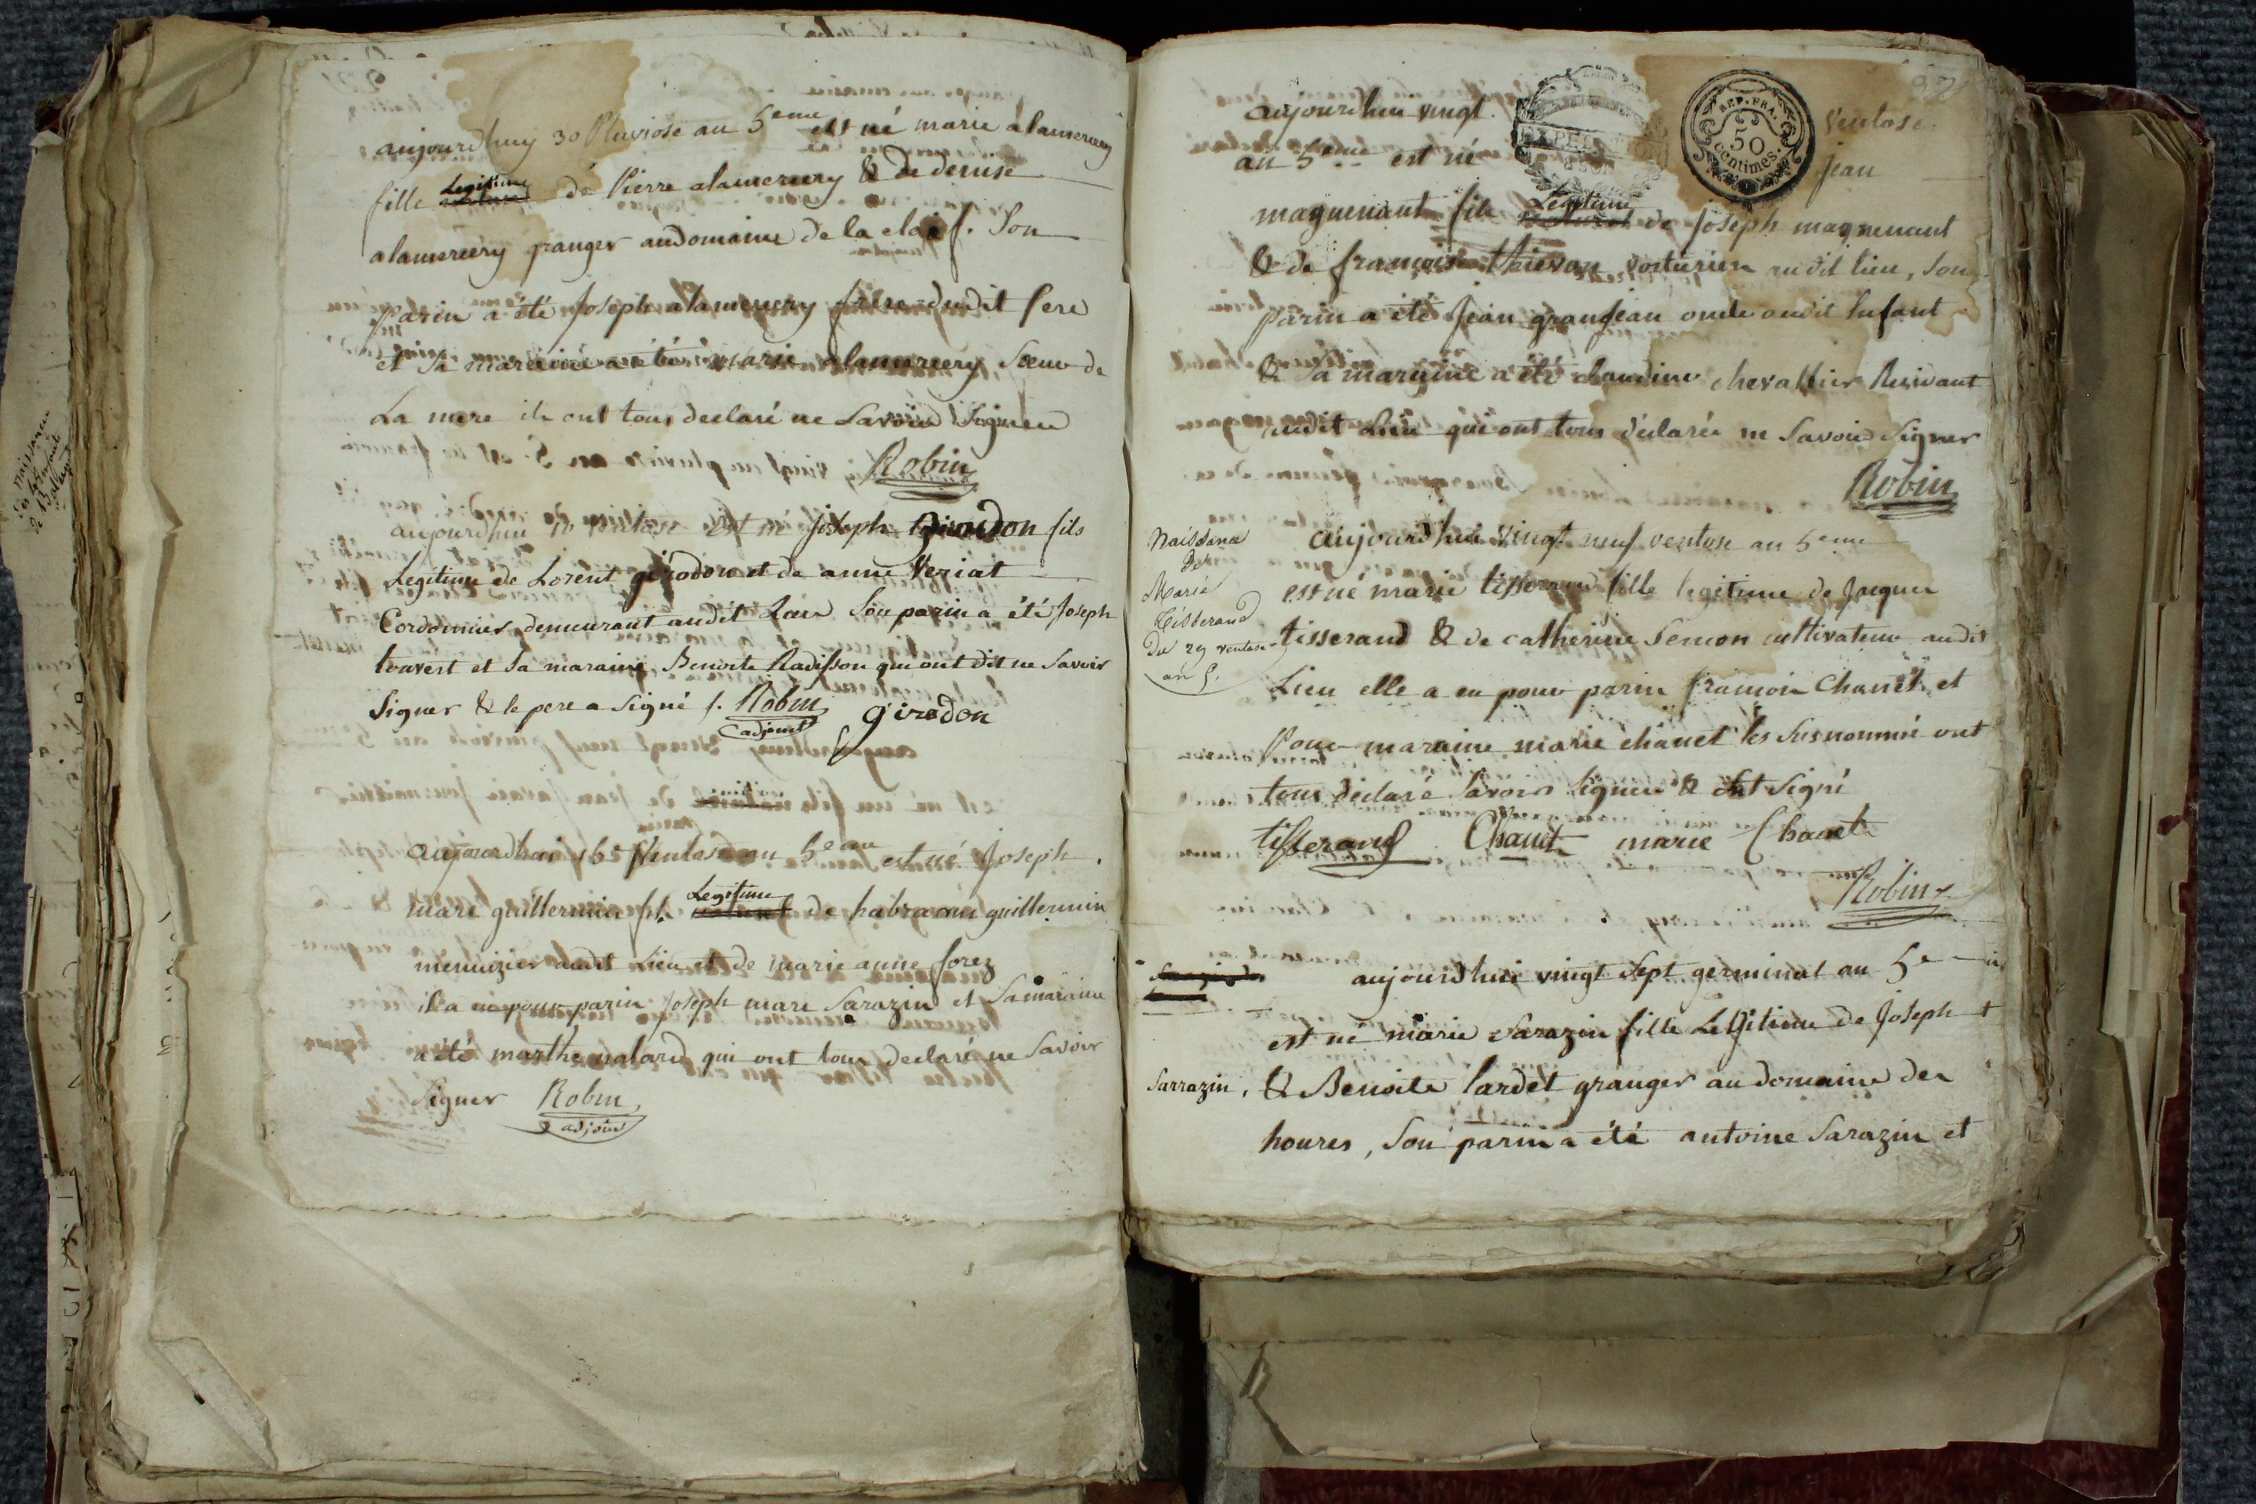 aujourdhuy 30 Pluviose au 5eme est né marie alamercery
fille Legitime de Pierre alamercery & de denise
alamercery granger audomaine de la clai f. Son
Parin a été Joseph alamercery frère dudit Pere
et Sa maraine a été marie alamercery Sœur de
La mere ils ont tous declaré ne Savoir Signer
Robin
aujourdhui ventose est né joseph girodon fils
Legitime de Lorent girodon et de anne Veriat
Cordonnier demeurant audit Lieu Son parin a été Joseph
louvest et Sa maraine Benoite Radisson qui ont dit ne Savoir
Signer & le pere a Signé /. Robin
adjoint
girodon
aujourdhui 16e Ventose au 5eme est né Joseph
mare guillermin fils Legitime de habraam guillermin
menuizier audit Lieu et de marie anne forez
il a eu pour parin Joseph mare Sarazin et Sa maraine
a été marthe nalard qui ont tous declaré ne Savoir
Signer Robin
adjoint
naissance
de
Bolland
aujourdhui vingt Ventose
au 5eme est né jean
REP. FRA.
50
centimes.
magnenant fils Legitime de Joseph magnenant
& de françoise thievon voiturier audit lieu, Son
Parin a été Jean grandjean oncle audit Enfant
& Sa maraine a été claudine chevallier Residant
audit Lieu qui ont tous déclarés ne Savoir Signer
Robin
Naissance
de
Marie
Tisserand
du 29 ventose
an 5.
aujourdhui vingt neuf ventose au 5eme
est né marie tisserand fille legitime de Jacques
tisserand & de catherine Semon cultivateur audit
Lieu elle a eu pour parin françois Chanet et
Pour maraine marie chanet les Susnommé ont
tous déclaré Savoir Signer & ont Signé
tisserand Chanet marie Chanet
Robin
aujourdhui vingt Sept germinal au 5e
est né marie Sarazin fille Legitime de Joseph
Sarrazin, & Benoite lardet granger au domaine des
houres, Son parin a été antoine Sarazin et